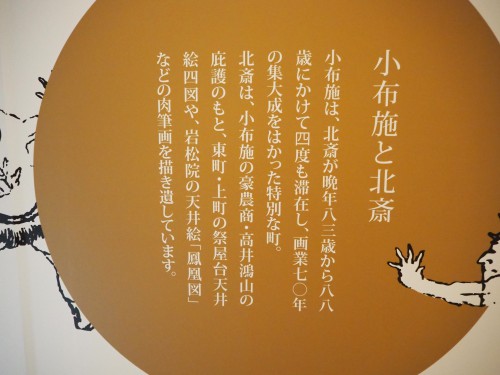 小布施と北斎
小布施は、北斎が晩年八三歳から八八
歳にかけて四度も滞在し、画業七〇年
の集大成をはかった特別な町。
北斎は、小布施の豪農商・高井鴻山の
庇護のもと、東町・上町の祭屋台天井
絵四図や、岩松院の天井絵「鳳凰図」
などの肉筆画を描き遺しています。